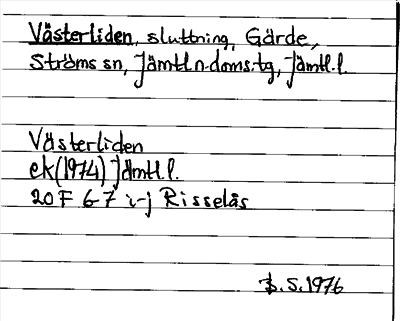 Västerliden, sluttning, Gärde,
Ströms sn, Jämtl. n. doms. tg, Jämtl. l.
Västerliden
ek (1974) Jämtl. l.
20 F 6-7 i-j Risselås
B. S. 1976